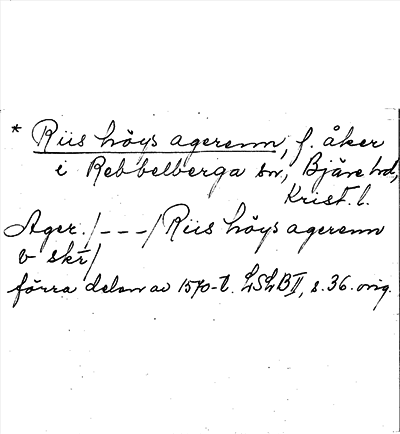 * Riis höys agerenn, f. åker
i Rebbelberga sn, Bjäre hd,
Krist. l.
Ager. /---/ Riis höys agerenn
v skr/
förra delen av 1570-t. LSLB II, s. 36. orig.